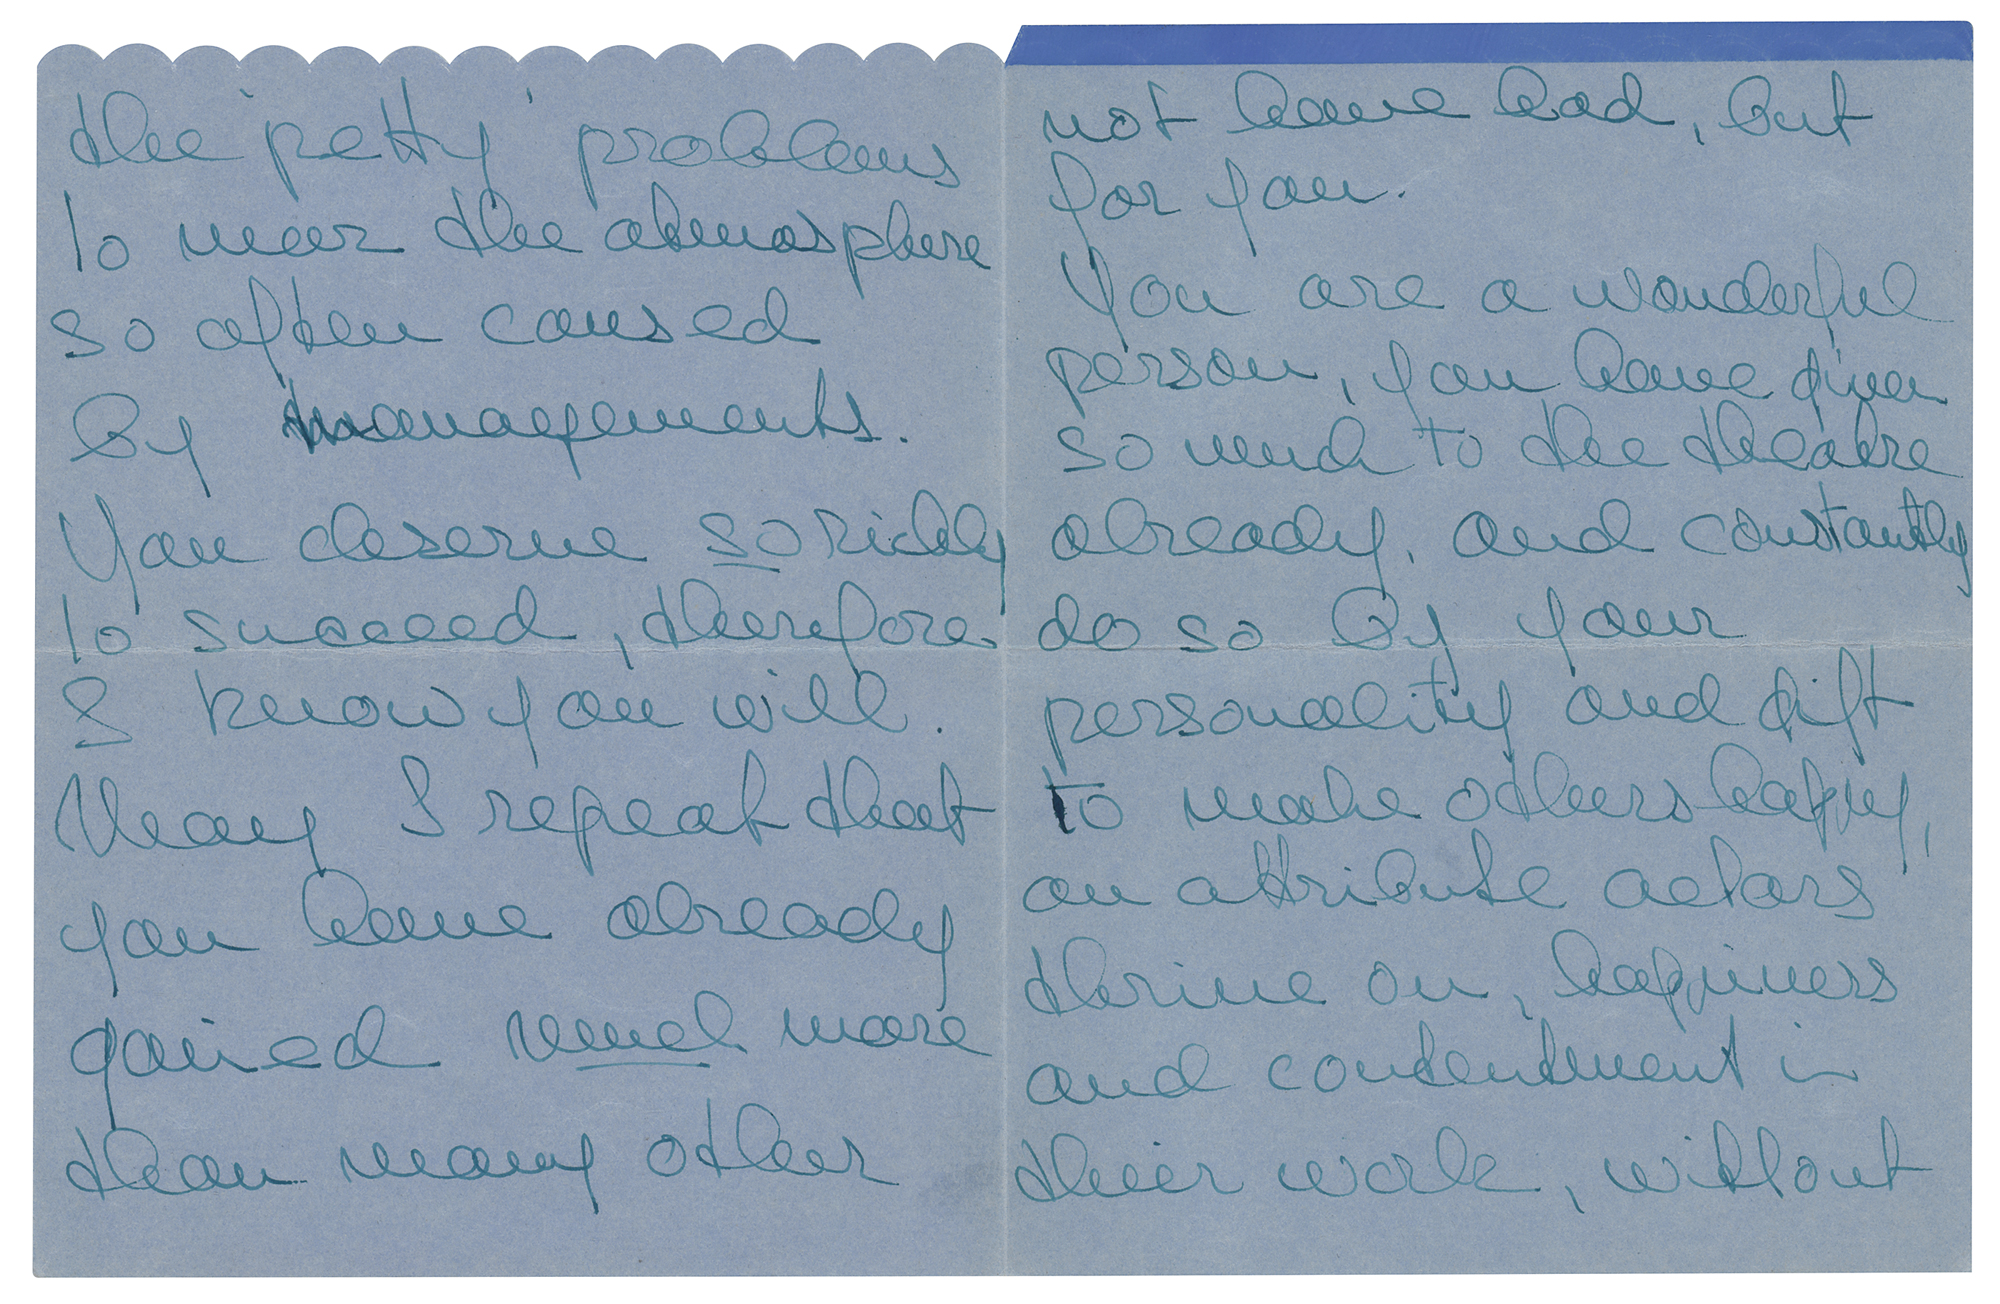 the 'petty' problems
to mar the atmosphere
so often caused
by managements.
You deserve so richly
to succeed, therefore
I know you will.
May I repeat that
you have already
gained much more
than many other
not have had, but
for you.
You are a wonderful
person, you have given
so much to the theatre
already, and constantly
do so by your
personality and gift
to make others happy,
an attribute actors
thrive on, happiness
and contentment in
their work, without